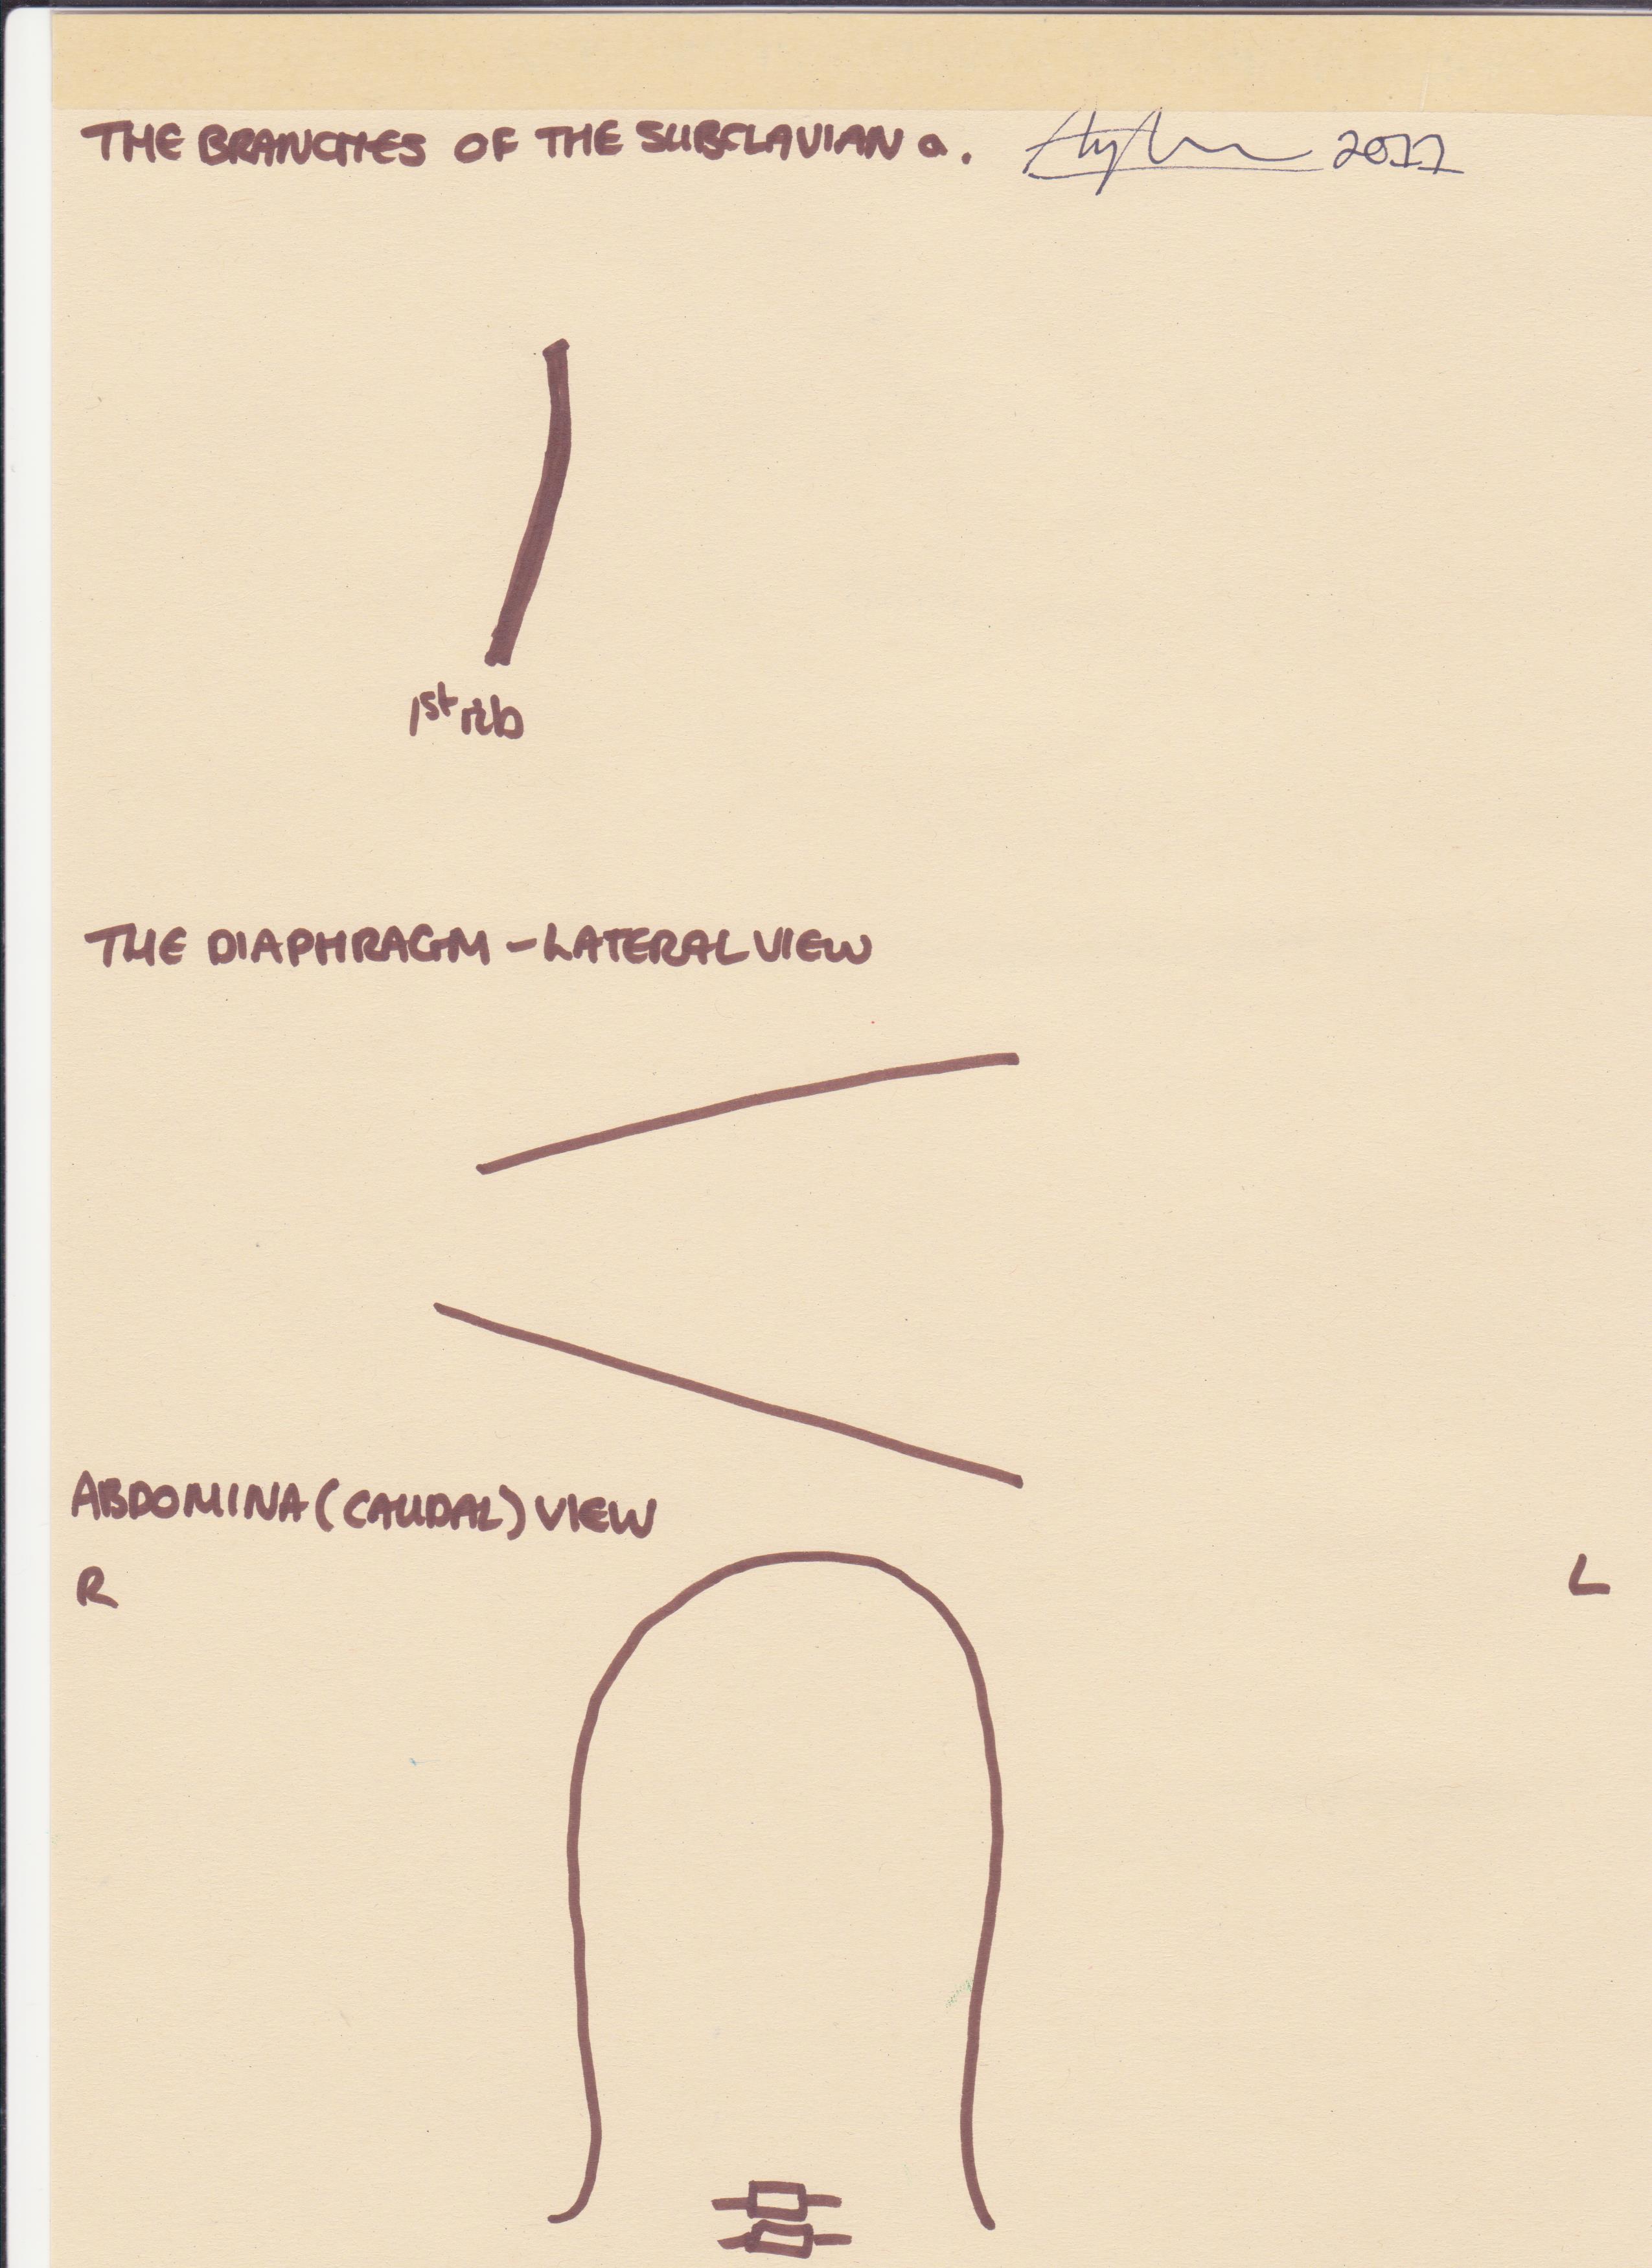 THE BRANCHES OF THE SUBCLAVIAN a. 2011
1st rib
THE DIAPHRAGM - LATERAL VIEW
ABDOMINA (CAUDAL) VIEW
R L